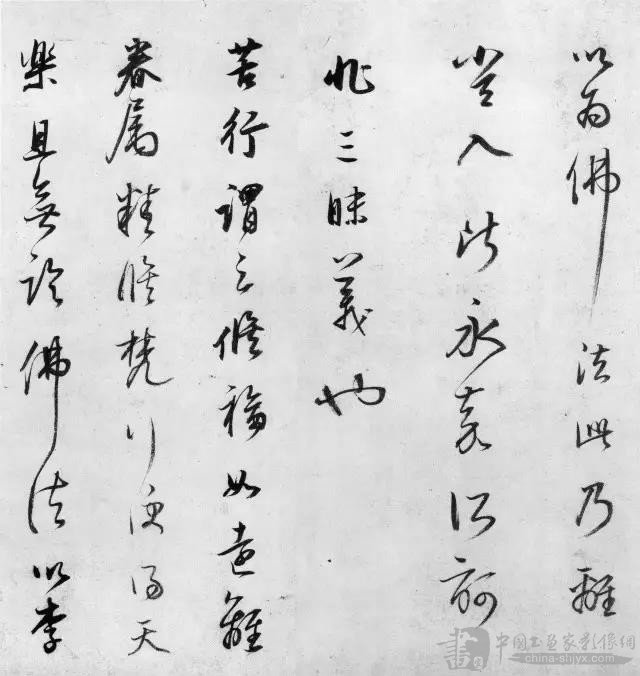 以為佛法此乃離
入永嘉所訶
非三昧義也
苦行謂之修福如遠離
眷属精修梵行便得天
樂且無論佛法以李
中國書畫家影像網
china-shjyx.com